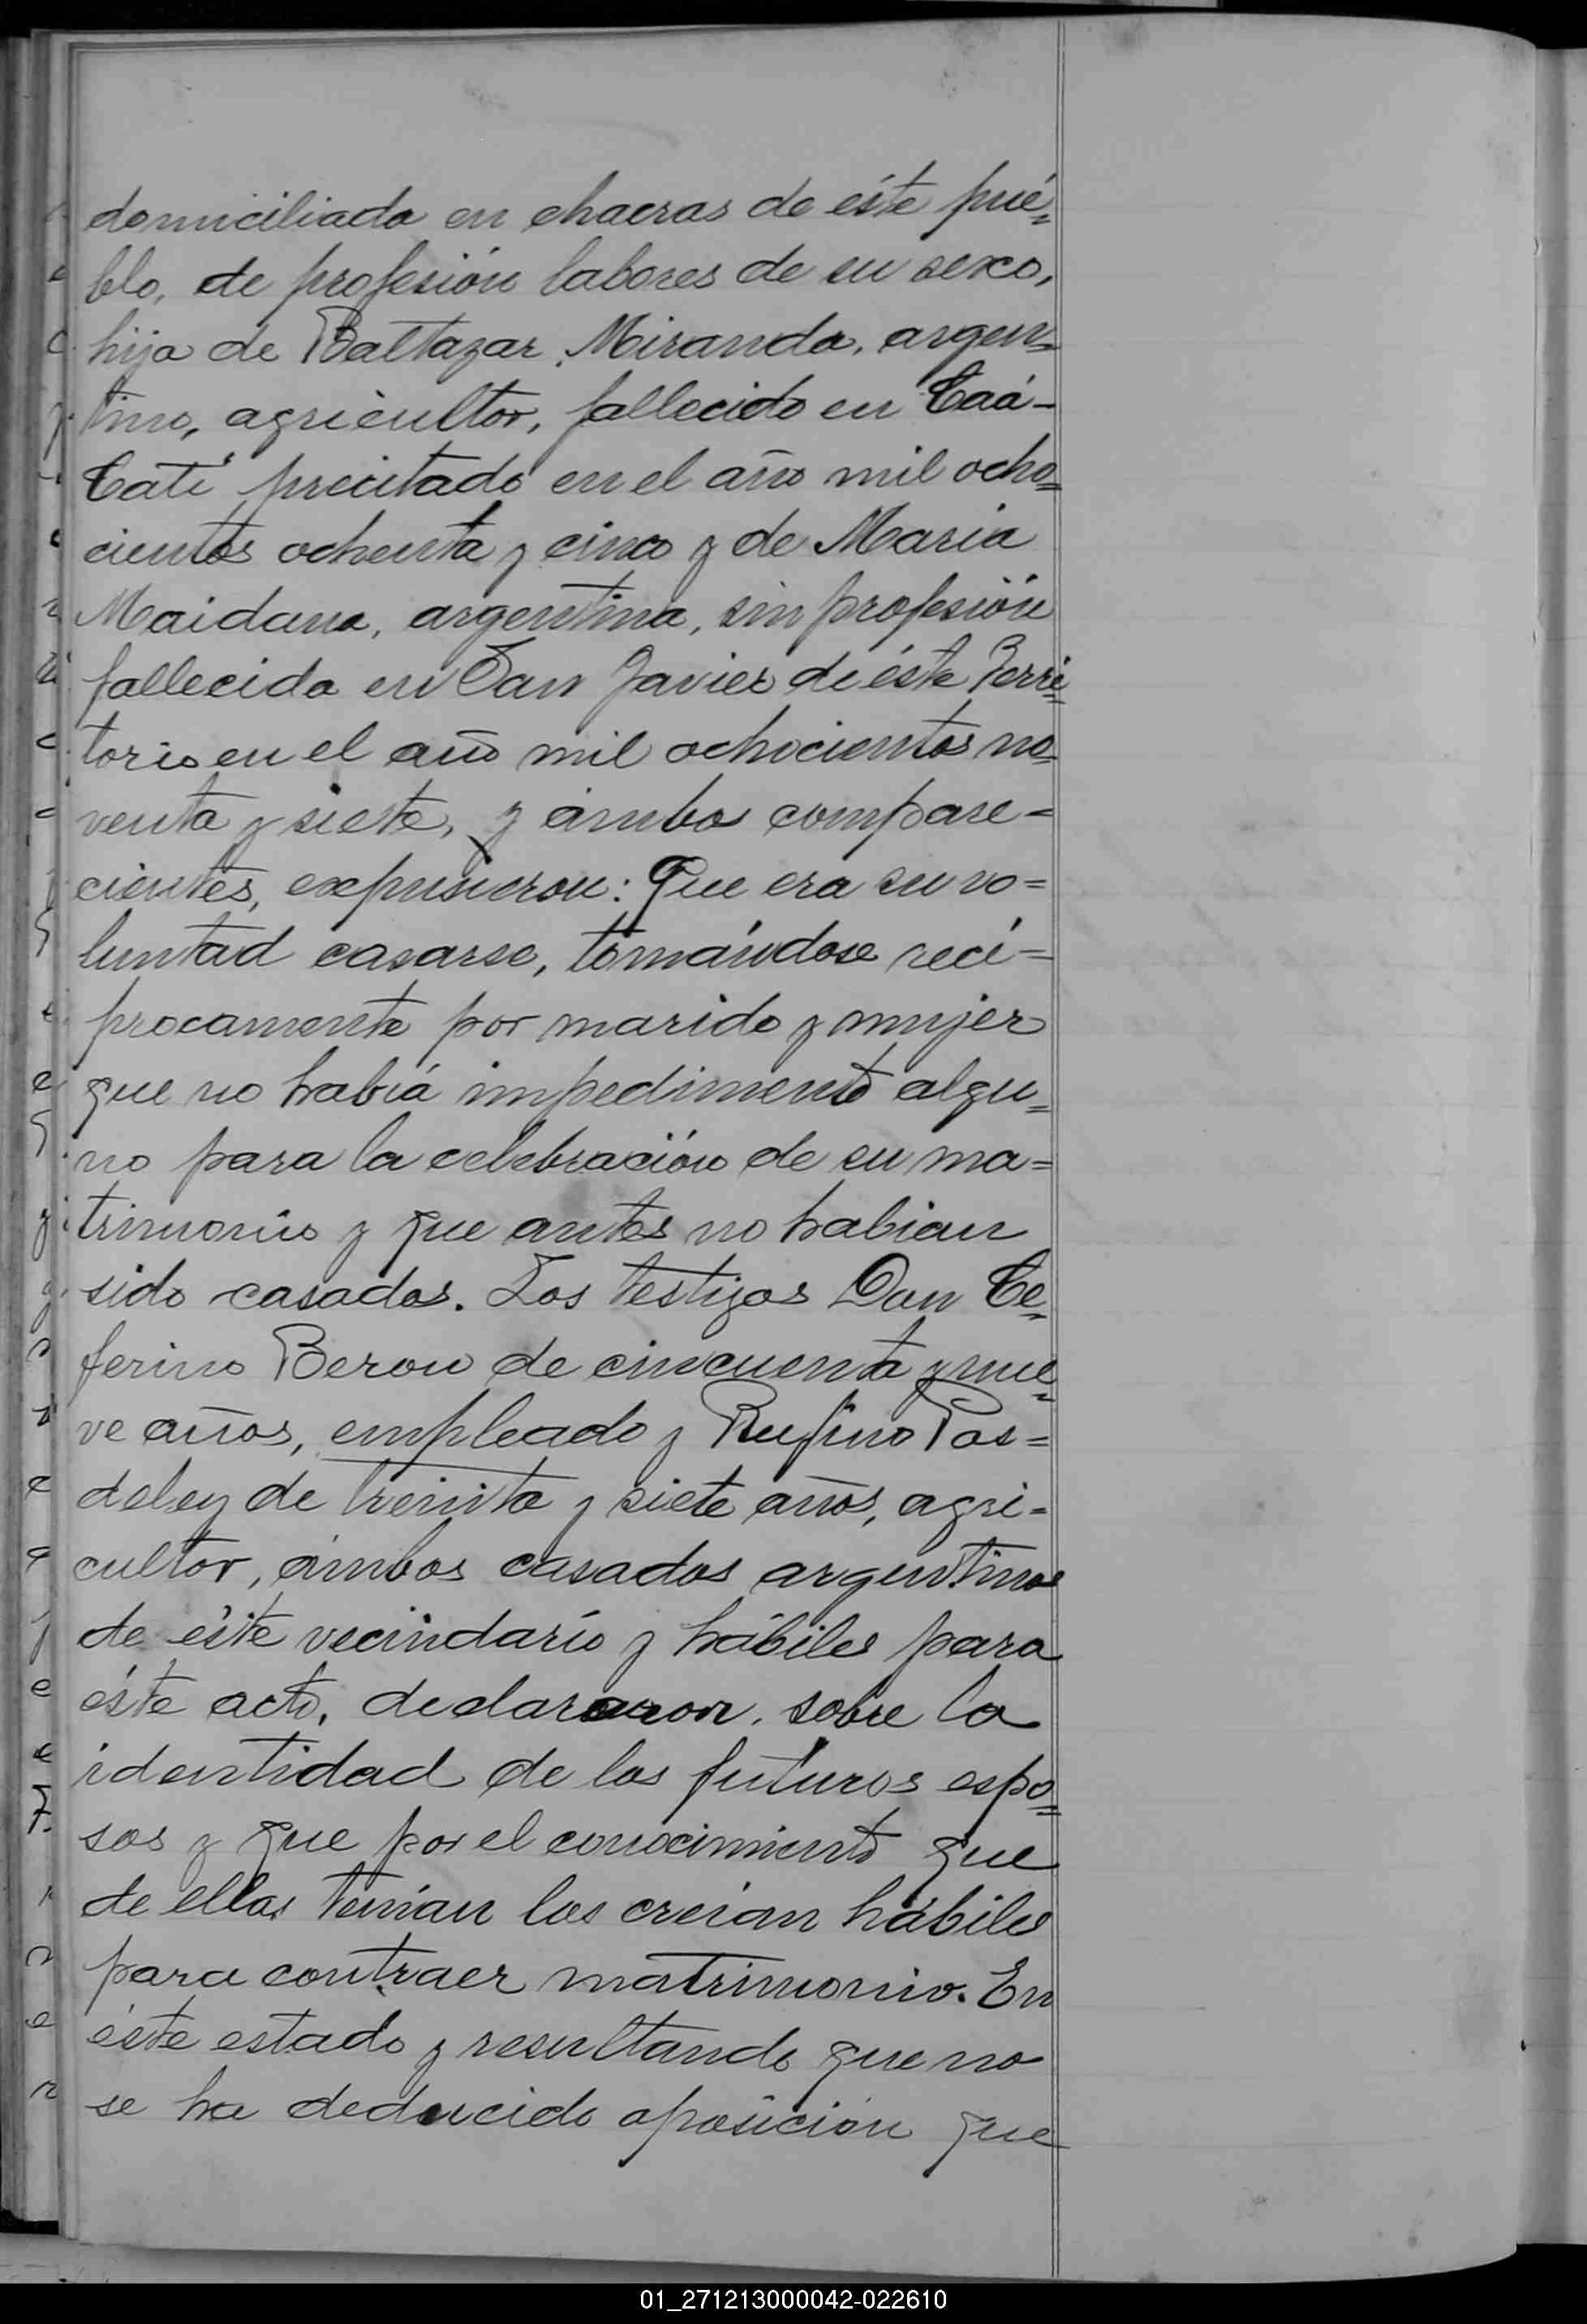 domiciliada en chacras de éste pué=
blo, de profesión labores de su sexo,
hija de Baltazar Miranda, argen=
tino, agricultor, fallecido en Caá-
Catí precitado en el año mil ocho=
cientos ochenta y cinco y de Maria
Maidana, argentina, sin profesión
fallecida en San Javier de éste Terri=
torio en el año mil ochocientos no=
venta y siete, y ámbos compare=
cientes, expusieron: Que era su vo=
luntad casarse, tomándose recí=
procamente por marido y mujer
que no había impedimento algu=
no para la celebración de su ma=
trimonio y que antes no habian
sido casados. Los testigos Don Ce=
ferino Beron de cincuenta y nue=
ve años, empleado y Rufino Pos=
deley de treinta y siete años, agri=
cultor, ámbos casados argentinos
de éste vecindario y hábiles para
éste acto, declararon, sobre la
identidad de los futuros espo=
sos y que por el conocimiento que
de ellos tenían los creían hábiles
para contraer matrimonio. En
éste estado y resultando que no
se ha deducido oposición que
01_271213000042-022610